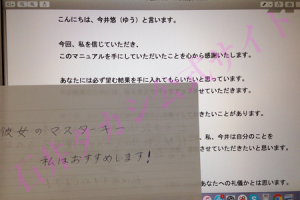 こんにちは、今井悠（ゆう）と言います。
今回、私を信じていただき、
このマニュアルを手にしていただいたことを心から感謝いたします。
あなたには必ず望む結果を手に入れてもらいたいと思っています。
させていただきます。
きたいことがあります。
私、今井は自分のことを
させていただきたいと思います。
あなたへの礼儀かとは思います。
彼女のマスターキー
私はおすすめします！